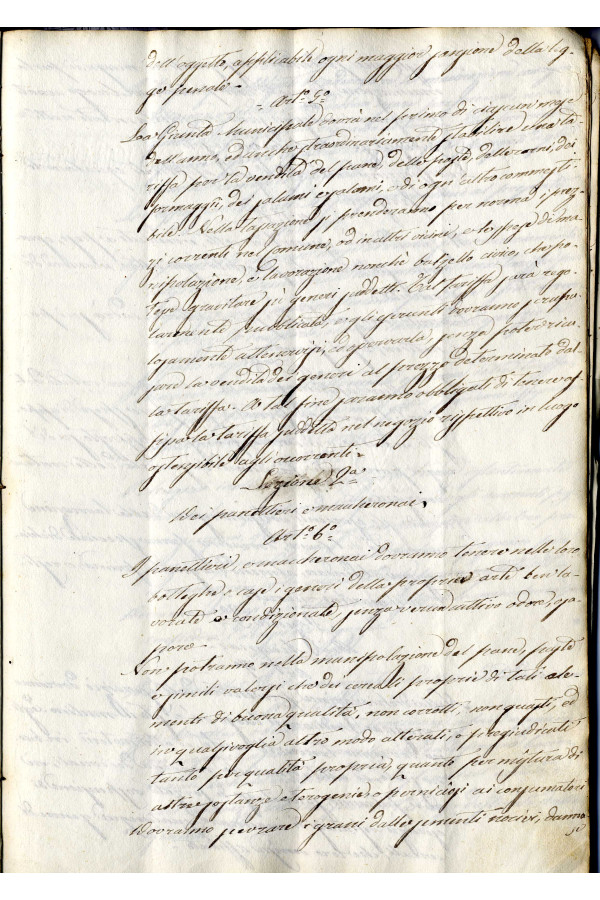 dell'oggetto, applicabile ogni maggior sanzione della leg-
ge penale.
Art.° 5.°
La Giunta Municipale dovrà nel primo di ciascun mese
dell'anno, ed anche straordinariamente stabilire una ta-
riffa per la vendita del pane, delle paste, delle carni, dei
formaggi, dei salami e salumi, e di ogni altro commesti-
bile. Nella tassazione si prenderanno per norma i prez-
zi correnti nel comune, od in altri vicini, e le spese di ma-
nipolazione, e lavorazione nonchè balzello civico, che po-
tesse gravitare sù generi suddetti. Tal tariffa sarà rego-
larmente pubblicata, e gli esercenti dovranno scrupo-
losamente attenervisi, ed osservarla, senza poter ricu-
sare la vendita dei generi al prezzo determinato dal-
la tariffa. A tal fine saranno obbligati di tenere af-
fissa la tariffa suddetta nel negozio rispettivo in luogo
ostensibile agli accorrenti.
Sezione 2.a
Dei panettieri e maccheronai.
Art.° 6.°
I panettieri, e maccheronai dovranno tenere nelle loro
botteghe e case i generi della propria arte ben la-
vorati e condizionati, senza verun cattivo odore, o sa-
pore.
Non potranno nella manipolazione del pane, paste
e simili valersi che dei cereali proprii di tali ale-
menti di buona qualità, non corrotti, non guasti, od
in qualsivoglia altro modo alterati, e pregiudicati
tanto per qualità propria, quanto per mistura di
altre sostanze eterogenee o perniciosi ai consumatori
Dovranno purgare i grani dalle sementi nocive, danno-
se